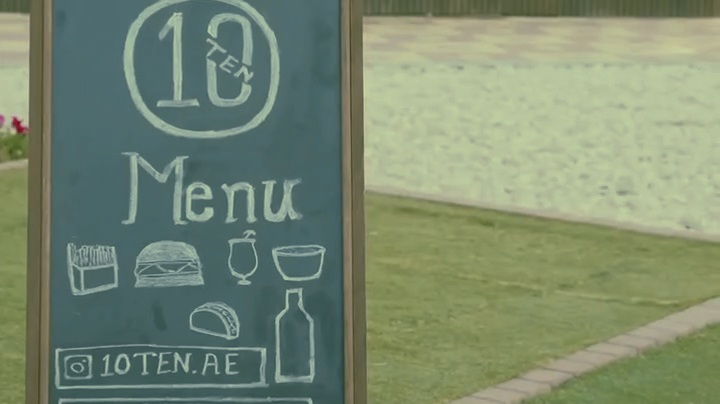 10
TEN
Menu
10TEN.AE